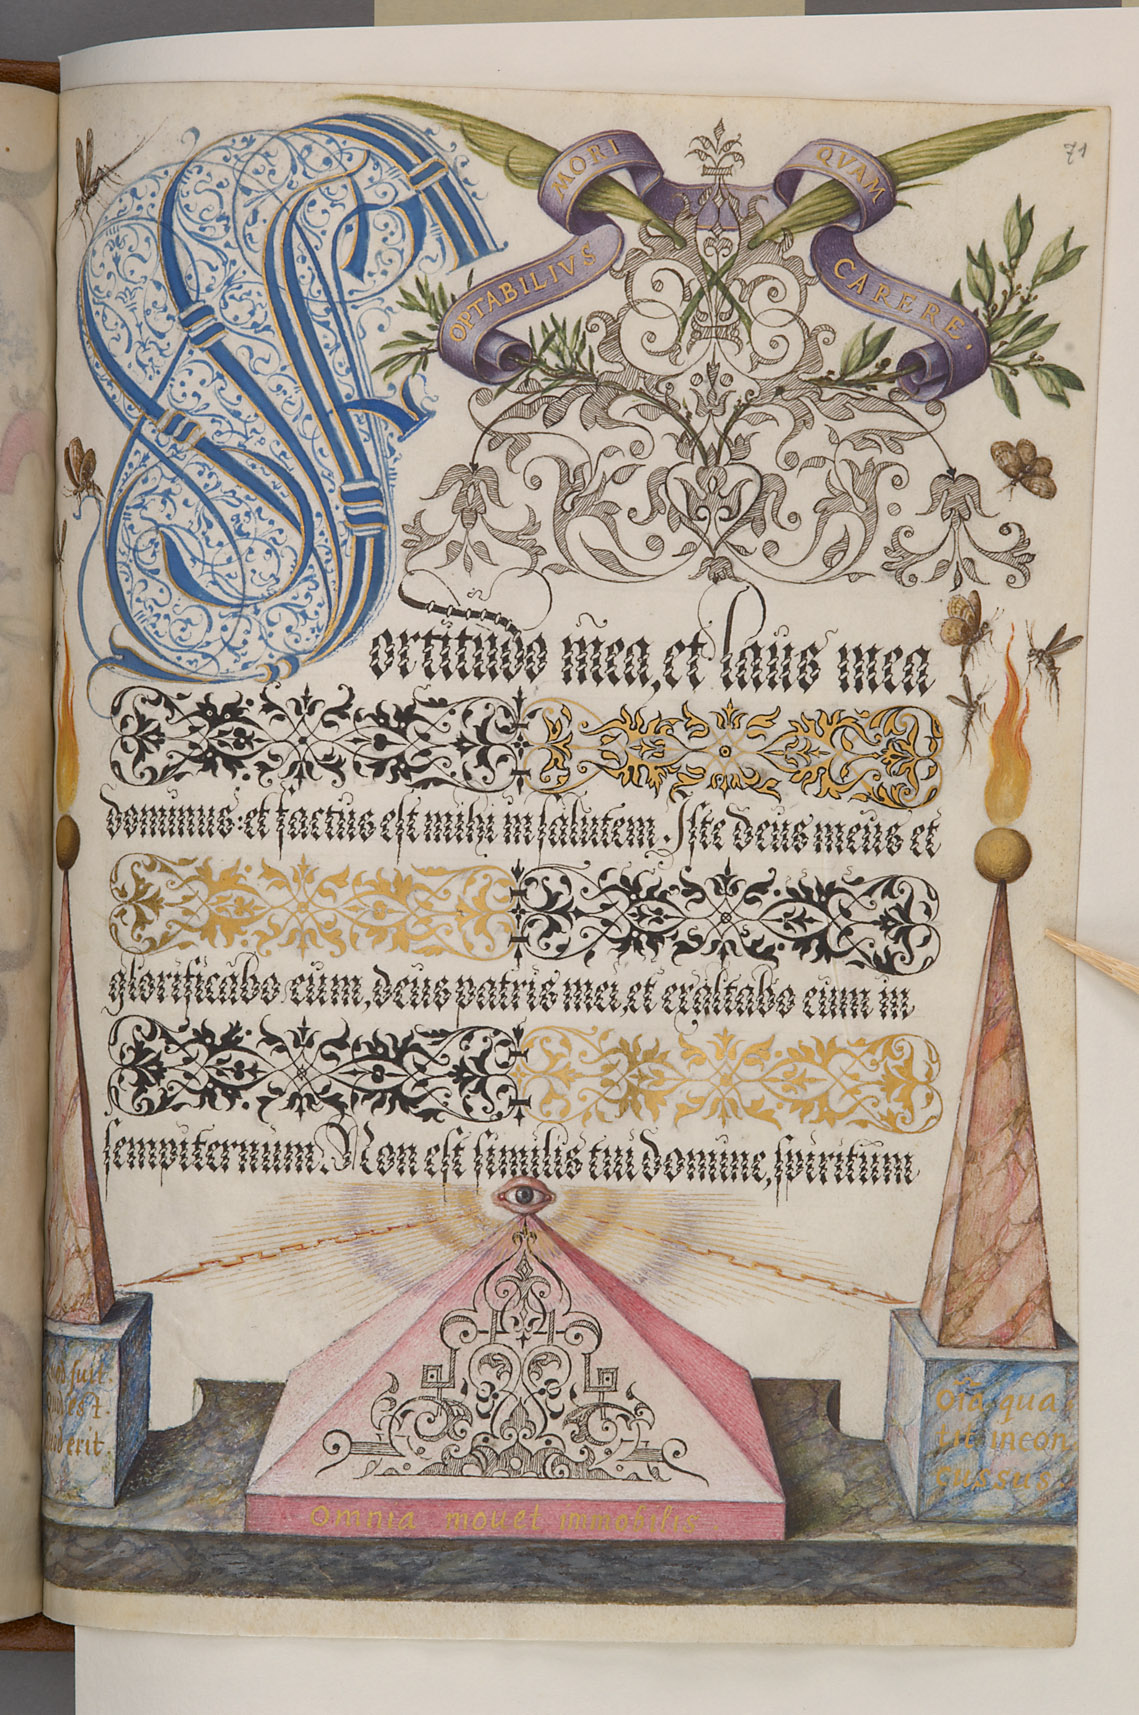 71
OPTABILIVS MORI QVAM CARERE.
Fortitudo mea, et laus mea
dominus: et factus est mihi in salutem. Iste deus meus et
glorificabo eum, deus patris mei, et exaltabo eum in
sempiternum. Non est similis tui domine, spirituum
fuit.
est.
erit.
Oīa qua
tit incon
cussus.
Omnia mouet immobilis.